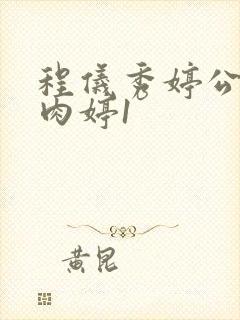 程儀秀婷公
肉婷1
黄昆